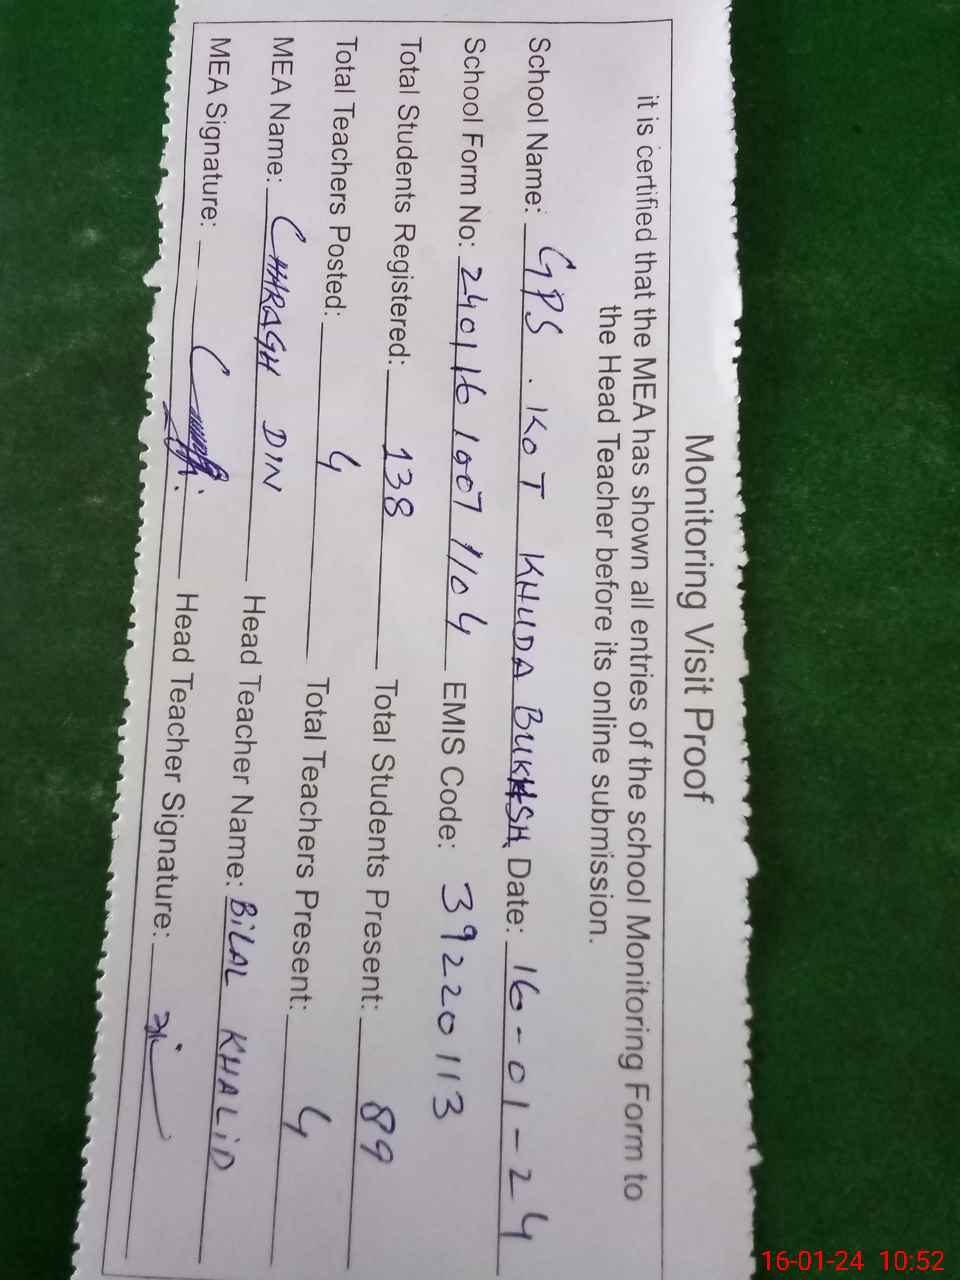 Monitoring Visit Proof
it is certified that the MEA has shown all entries of the school Monitoring Form to
the Head Teacher before its online submission.
School Name: GPS . KOT KHUDA BUKHSH Date: 16-01-24
School Form No: 240116 1007 1104 EMIS Code: 39220113
Total Students Registered: 138 Total Students Present: 89
Total Teachers Posted: 4 Total Teachers Present: 4
MEA Name: CHHRAGH DIN Head Teacher Name: BiLAL KHALiD
MEA Signature: Head Teacher Signature:
16-01-24 10:52